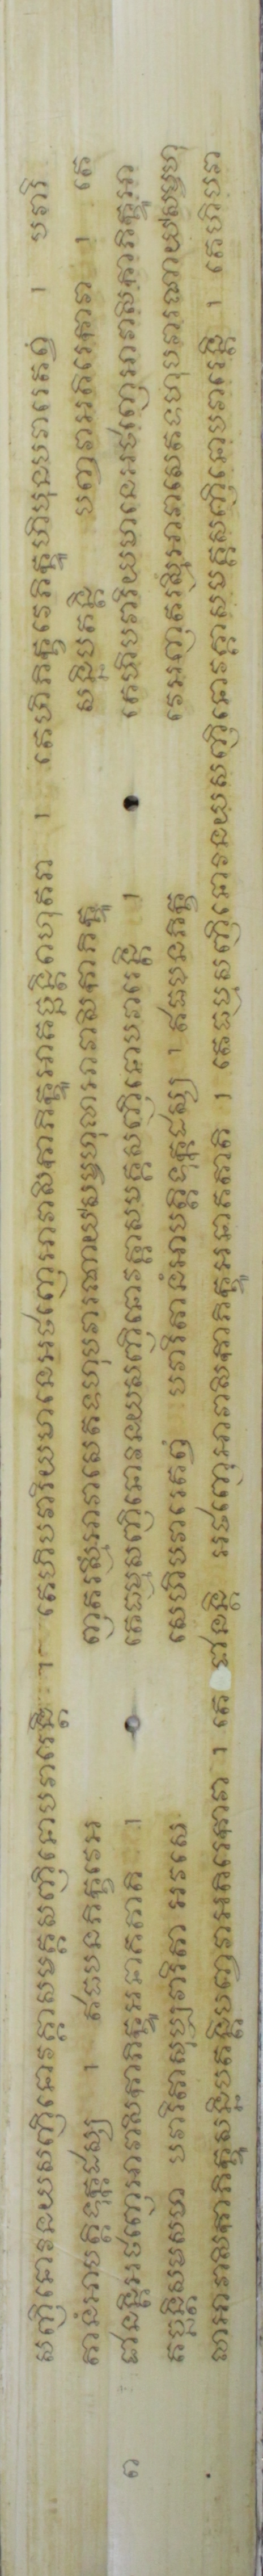 សញ្ញិនោវិនយសញ្ញិនោវគ្គាសមគ្គសញ្ញិនោបវារេន្តិ ។ តេហិបវារិយមានេអថញ្ញេអាវាសិកាភិក្ខូអាគច្ឆន្តិពហុតរា ។ តេហិភិក្ខវេភិក្ខូហិបុនបវារេតព្វំ ។ បវារិ
តានំអាបត្តិទុក្កដស្ស ។ ឥធបនភិក្ខវេអ ញតរស្មិំអាវាសេតទហុបវារណាយសម្ពហុលាអាវាសិកាភិក្ខូ សន្និបតន្តិ បញ្ចវាអតិរេកាវា ។ តេ
ជានន្តិអថញ្ញេអាវាសិកាភិក្ខូអនាគតាតិ ។ តេធម្មសញ្ញិនោវិនយសញ្ញិនោវគ្គាសមគ្គសញ្ញិនោបវារេន្តិ ។ តេហិបវារិយមានេអថញ្ញេអាវាសិកាភិក្ខូអា
គច្ឆន្តិសមសមា បវារិតាសុប្បវារិតា អវសេ សេហិបវារេតព្វំ បវារិតានំអាបត្តិទុក្កដស្ស ។ ឥធបនភិក្ខ វេអញតរស្មិំអាវាសេតទហុបវារណាយសម្ពហុ
លាអាវាសិកាភិក្ខូសន្និបតន្តិបញ្ចវាអតិរេកាវា ។ តេ ជានន្តិ អថញ្ញេអាវាសិកាភិក្ខូអនាគតាតិ ។ តេធម្មសញ្ញិនោវិនយសញ្ញិនោវគ្គាសមគ្គសញ្ញិនោបវារេន្តិ ។ តេហិបវា